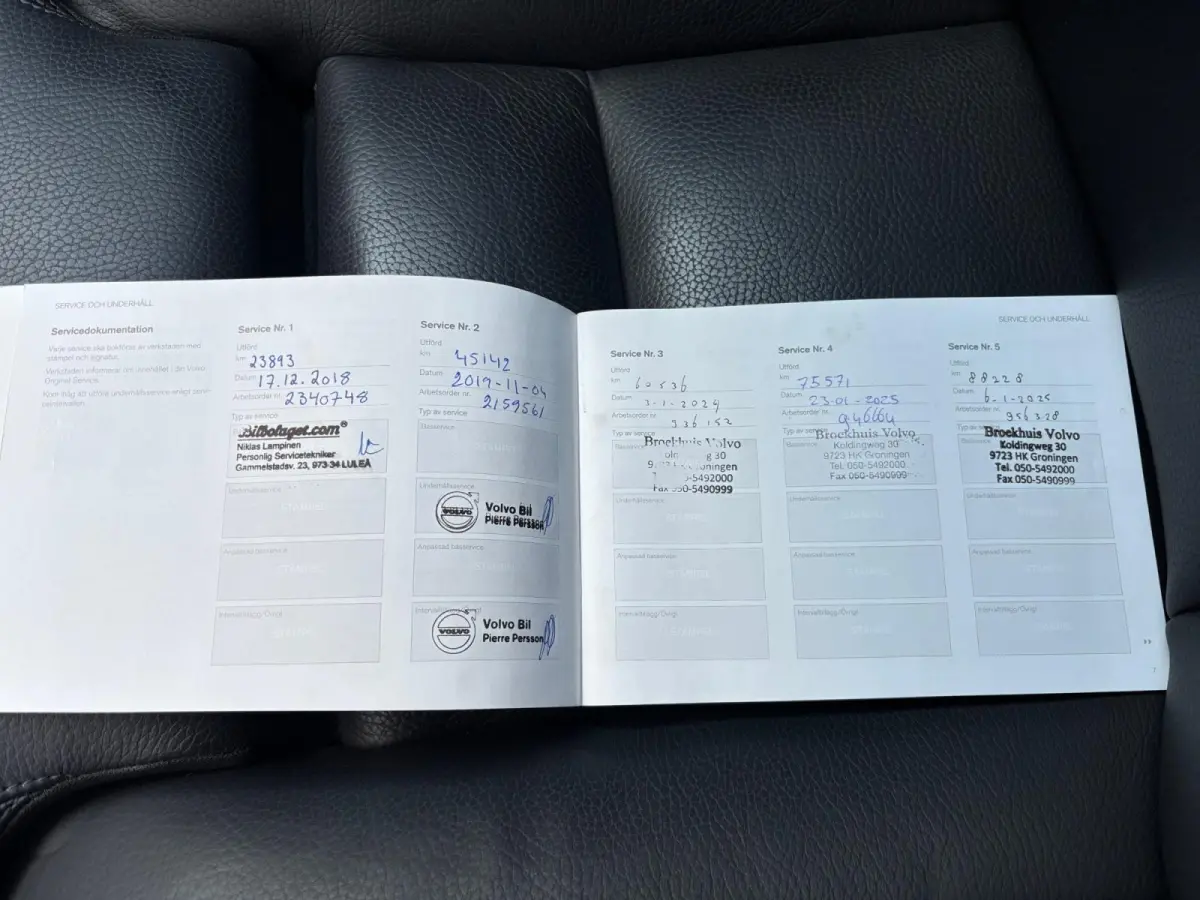 SERVICE OCH UNDERHÅLL
Servicedokumentation
Varje service ska bokföras av verkstaden med
stämpel och signatur.
Verkstaden informerar om innehållet i din Volvo
Original Service.
Kom ihåg att utföra underhållsservice enligt
Service Nr. 1
Utförd
km 23893
Datum 17.12.2018
Arbetsorder nr. 2340748
Typ av service
Bilbolaget.com®
Niklas Lampinen
Personlig Servicetekniker
Gammelstadsv. 23, 973 34 LULEÅ
Underhållsservice
STÄMPEL
Anpassad basservice
STÄMPEL
Intervalltillägg/Övrigt
STÄMPEL
Service Nr. 2
Utförd
km 45142
Datum 2019-11-04
Arbetsorder nr. 2159561
Typ av service
Basservice
STÄMPEL
Underhållsservice
VOLVO
Volvo Bil
Pierre Persson
Anpassad basservice
STÄMPEL
Intervalltillägg/Övrigt
VOLVO
Volvo Bil
Pierre Persson
SERVICE OCH UNDERHÅLL
Service Nr. 3
Utförd
km 60536
Datum 3-1-2024
Arbetsorder nr. 936152
Typ av service
Basservice
Broekhuis Volvo
30
Groningen
050-5492000
Fax 050-5490999
Underhållsservice
STÄMPEL
Anpassad basservice
STÄMPEL
Intervalltillägg/Övrigt
STÄMPEL
Service Nr. 4
Utförd
km 75571
Datum 23-01-2025
Arbetsorder nr. 946664
Typ av service
Basservice
Broekhuis Volvo
Koldingweg 30
9723 HK Groningen
Tel. 050-5492000
Fax 050-5490999
Underhållsservice
STÄMPEL
Anpassad basservice
STÄMPEL
Intervalltillägg/Övrigt
STÄMPEL
Service Nr. 5
Utförd
km 88228
Datum 6-1-2025
Arbetsorder nr. 956328
Typ av service
Broekhuis Volvo
Koldingweg 30
9723 HK Groningen
Tel. 050-5492000
Fax 050-5490999
Underhållsservice
STÄMPEL
Anpassad basservice
STÄMPEL
Intervalltillägg/Övrigt
STÄMPEL
››
7